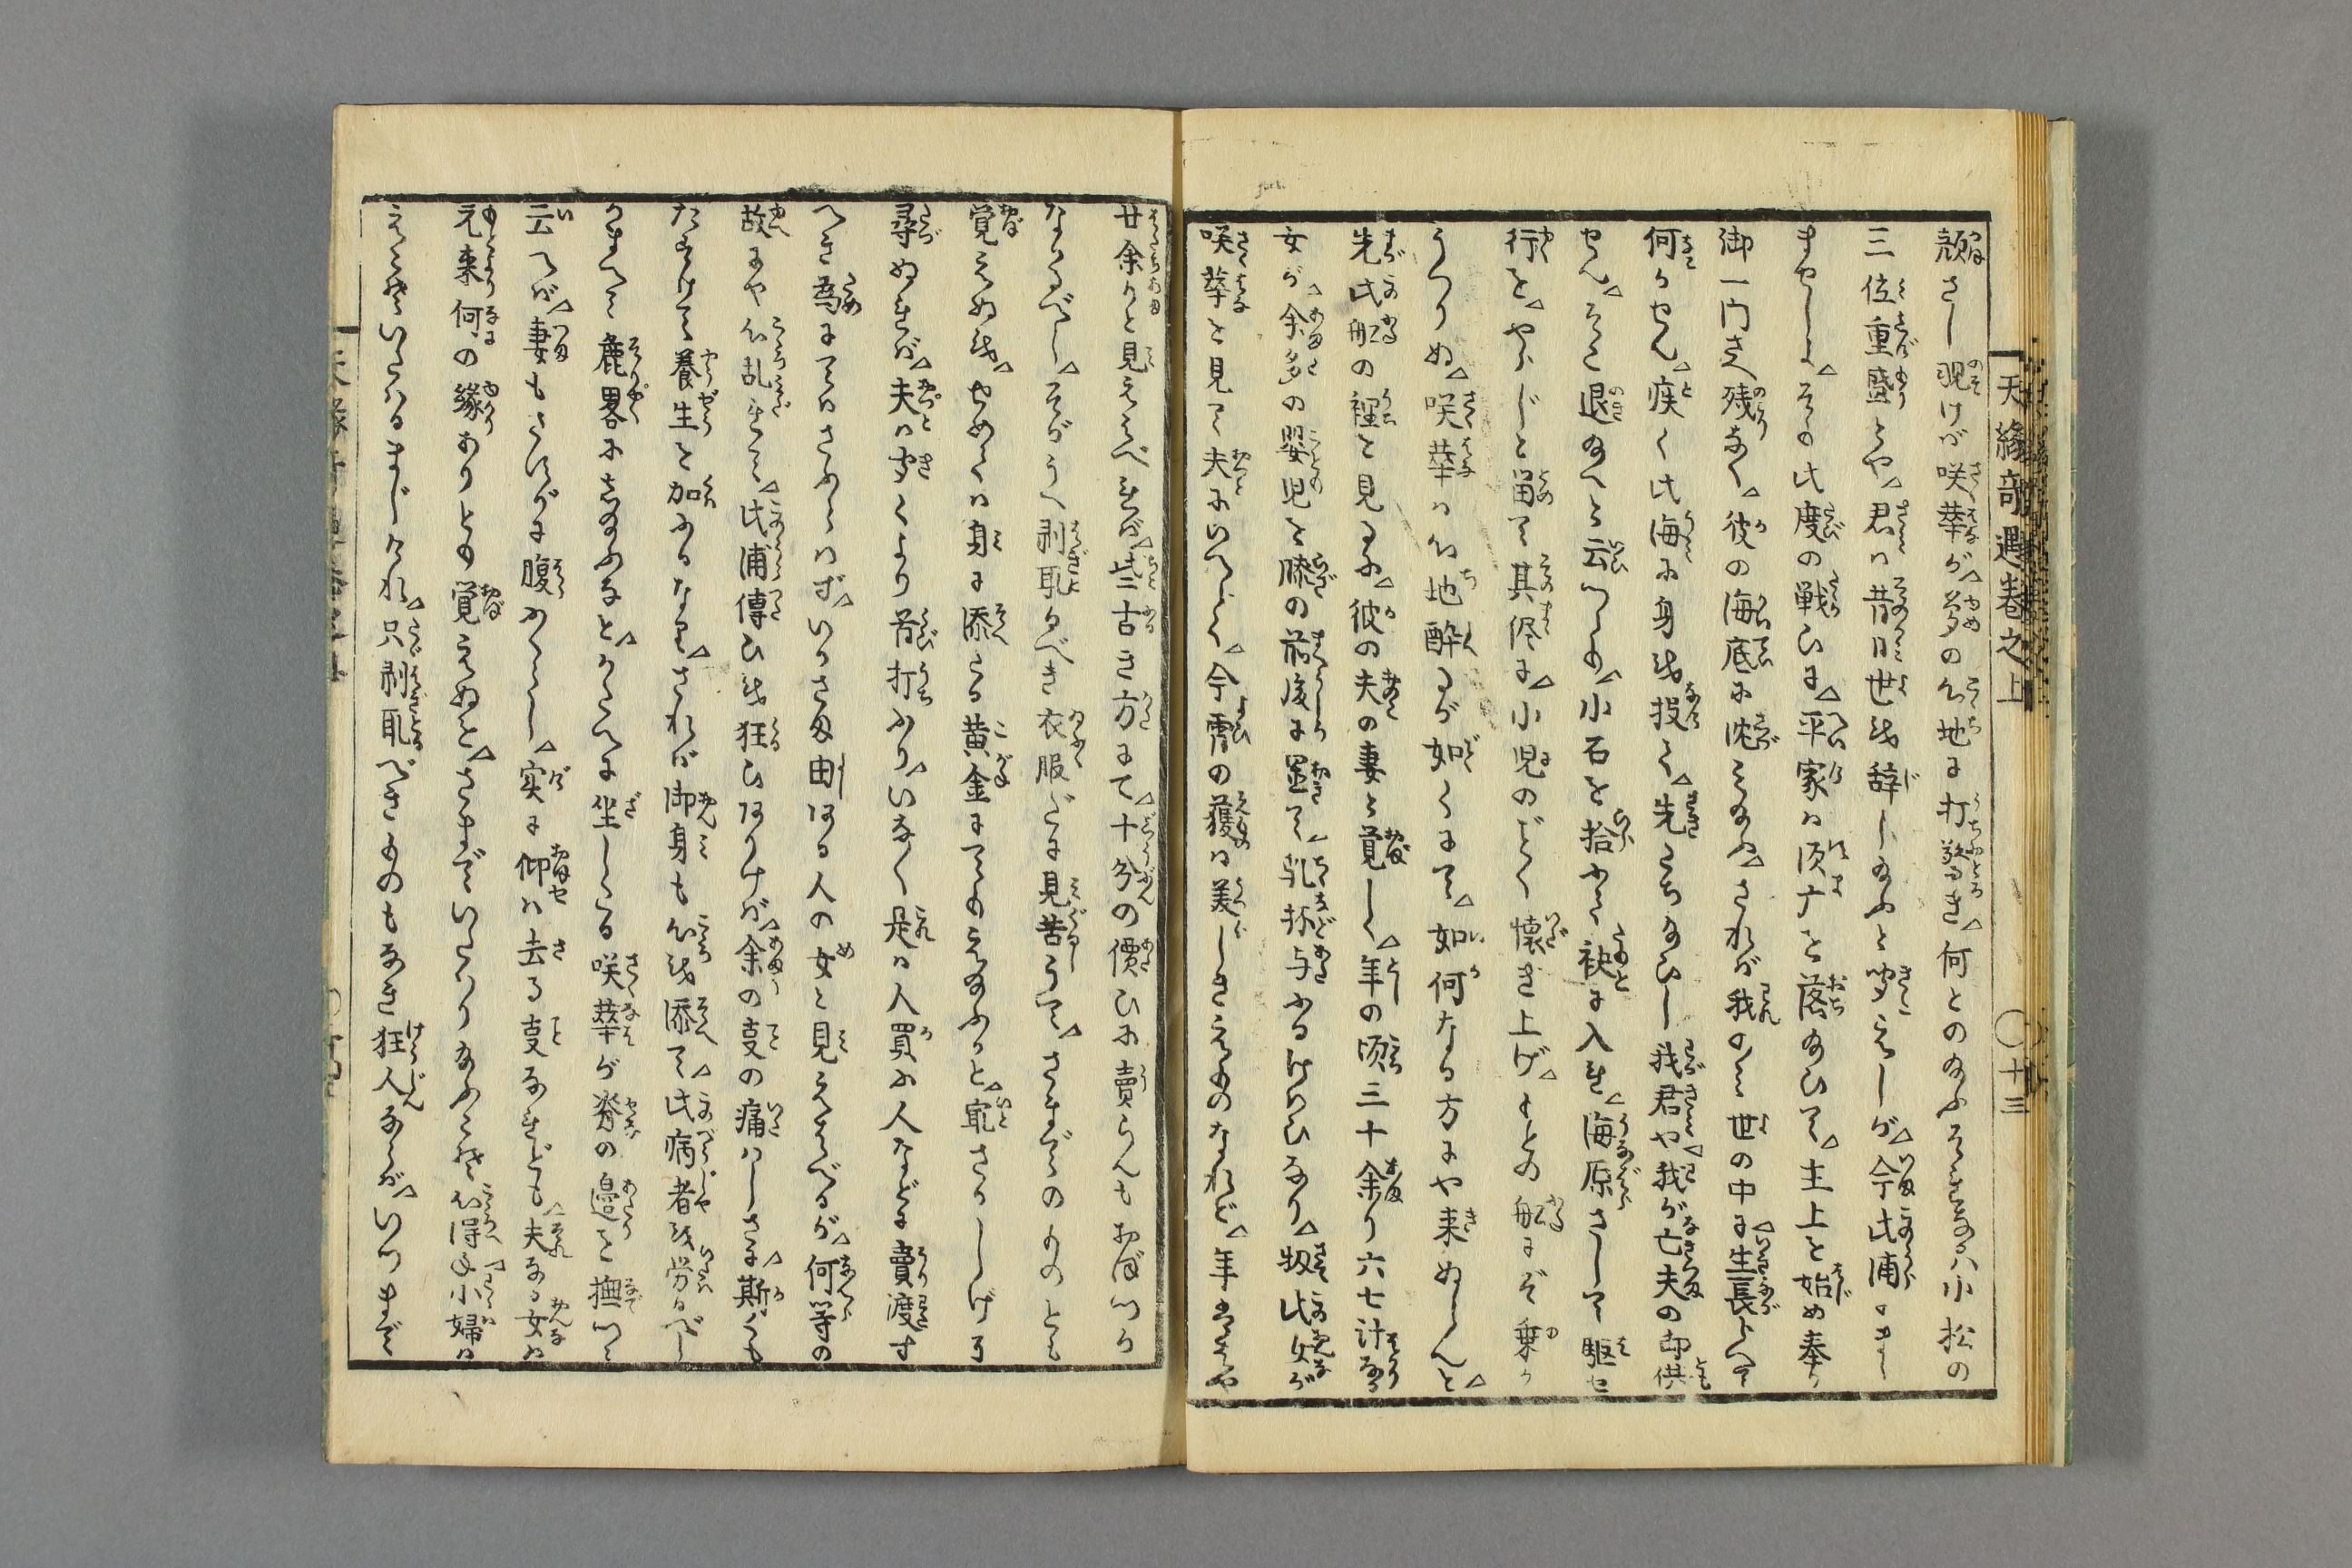 天縁奇遇巻之上 〇十三
顔さし覗けば咲華が夢の心地に打驚き何とのたまふそ小松の
三位重盛とや君は昔日世を辞し給ふと聞えしが今此浦にまし
ましますその此度の戦ひに平家は須广を落給ひて主上を始め奉り
御一門さへ残なく彼の海底に沈み給ふされば我のみ世の中に生長へて
何かせん疾く此海に身を投て先だち給ひし我君や我が亡夫の御供
せんそこ退給へと云つゝも小石を拾ふて袂に入れ海原さして駆せ
行をやらじと留て其侭に小児のごとく懐き上げもとの船にぞ乗
うつりぬ咲華は心地酔るが如くにて如何なる方にや来ぬらんと
先此船の裡を見るに彼の夫の妻と覚しく年の頃三十余り六七計なる
女が余多の嬰児を膝の前後に置て乳抔与ふるけはひなり扨此女が
咲華を見て夫にいへらく今霄の獲は美しきえものなれど年
廿余りと見え侍べれば些古き方にて十分の價ひに賣らんもおぼつか
なかるべしそがうへ剥取るべき衣服だに見苦うてさまでのものとも
覚えぬをせめては身に添たる黄金にても え給ふかと寔さかしげに
尋ぬれば夫は聞くより首打ふりいなく是は人買ふ人などに賣渡す
べき為にてはさふらはずいかさま由ある人の女と見え侍べるが何等の
故にや心乱れて此浦傳ひを狂ひありけば余りの叓の痛はしさに斯くも
たすけて養生を加ふるなりされば御身も心を添て此病者を労るべし
かまへて麁畧に給ふなとかたへに坐したる咲華が脊の邉を撫つゝ
云へば妻もさすがに腹ふくらし実に仰は去る叓なれども夫ある女は
元来何の縁ありとも覚えぬをさまでいたはり給ふこそ心得ね小婦は
えこそいたはるまじけれ只剥取べきものもなき狂人ならばいつまで